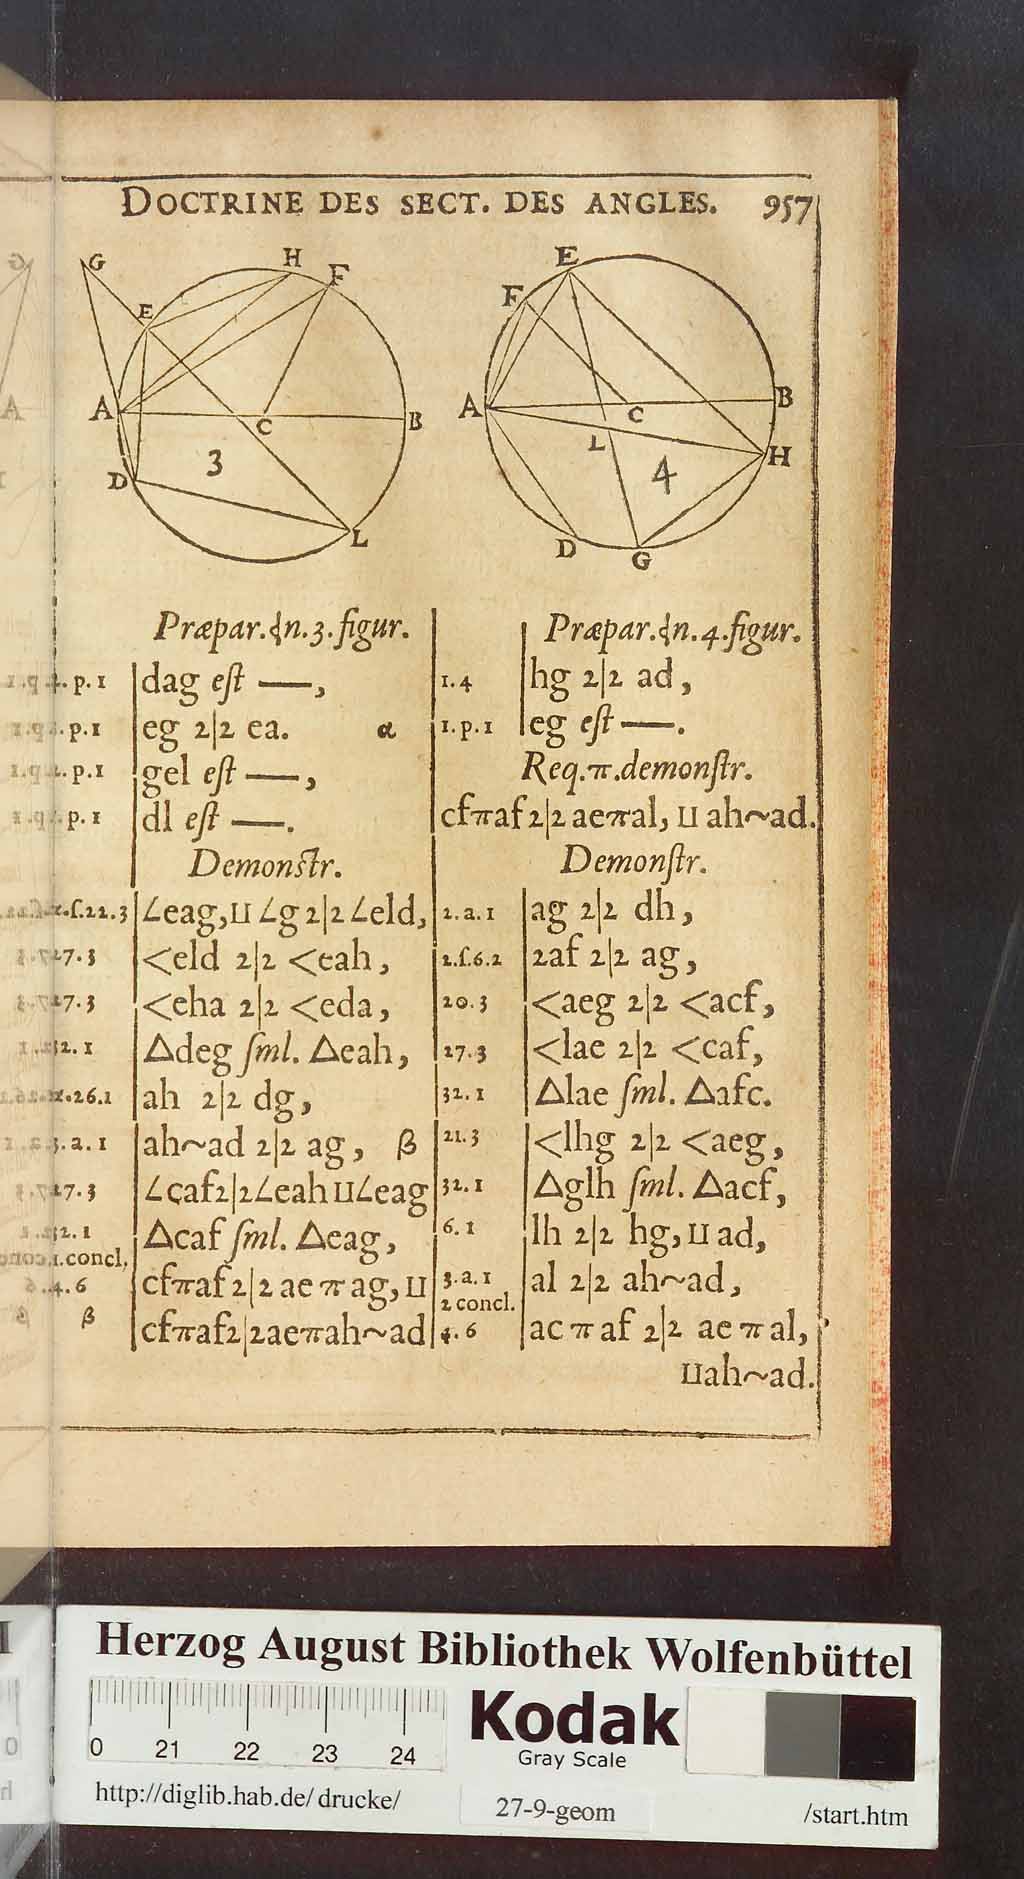 DOCTRINE DES SECT. DES ANGLES. 957
G
H
F
E
A
C
B
3
D
L
E
F
A
C
B
L
H
4
D
G
Præpar. n. 3. figur.
p. 1 dag eſt —,
p. 1 eg 2|2 ea. α
p. 1 gel eſt —,
p. 1 dl eſt —.
Demonſtr.
ſ.22.3 ∠eag, ⊔ ∠g 2|2 ∠eld,
27.3 <eld 2|2 <eah,
27.3 <eha 2|2 <eda,
32.1 △deg ſml. △eah,
26.1 ah 2|2 dg,
3.a.1 ah~ad 2|2 ag, β
27.3 ∠caf2|2∠eah⊔∠eag
32.1 △caf ſml. △eag,
1.concl.
4.6 cfπaf 2|2 ae π ag, ⊔
β cfπaf2|2aeπah~ad
Præpar. n. 4. figur.
1.4 hg 2|2 ad,
1.p.1 eg eſt —.
Req.π.demonſtr.
cfπaf 2|2 aeπal, ⊔ ah~ad.
Demonſtr.
2.a.1 ag 2|2 dh,
2.ſ.6.2 2af 2|2 ag,
20.3 <aeg 2|2 <acf,
27.3 <lae 2|2 <caf,
32.1 △lae ſml. △afc.
21.3 <lhg 2|2 <aeg,
32.1 △glh ſml. △acf,
6.1 lh 2|2 hg, ⊔ ad,
3.a.1 al 2|2 ah~ad,
2 concl.
4.6 ac π af 2|2 ae π al,
⊔ah~ad.
Herzog August Bibliothek Wolfenbüttel
0 21 22 23 24
Kodak
Gray Scale
http://diglib.hab.de/drucke/ 27-9-geom /start.htm